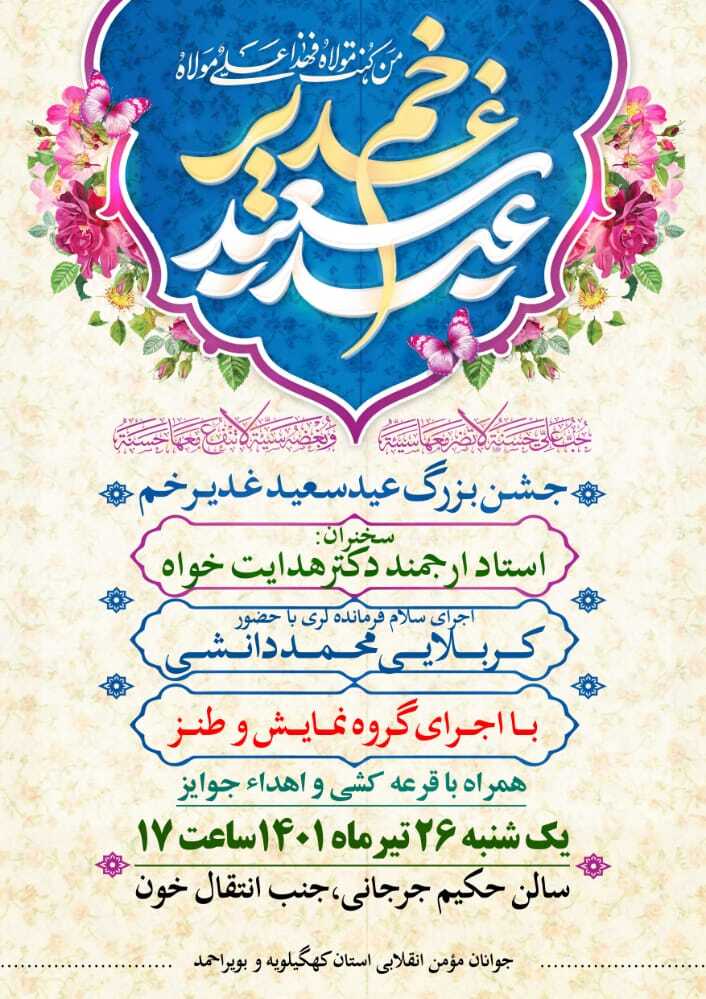 من کنت مولاه فهذا علی مولاه
عید سعید
غدیر خم
حب علی حسنة لا تضر معها سیئة و بغضه سیئة لا تنفع معها حسنة
جشن بزرگ عید سعید غدیر خم
سخنران:
استاد ارجمند دکتر هدایت خواه
اجرای سلام فرمانده لری با حضور
کربلایی محمد دانشی
با اجرای گروه نمایش و طنز
همراه با قرعه کشی و اهداء جوایز
یک شنبه ۲۶ تیر ماه ۱۴۰۱ ساعت ۱۷
سالن حکیم جرجانی، جنب انتقال خون
جوانان مؤمن انقلابی استان کهگیلویه و بویراحمد